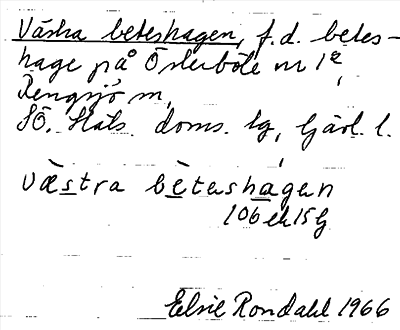 Västra beteshagen, f.d. betes-
hage på Österböle nr 1²,
Rengsjö sn,
SÖ. Häls. doms. lg, Gävl. l.
væstra bèteshagen
106 ek 15 lj
Elsie Rondahl 1966